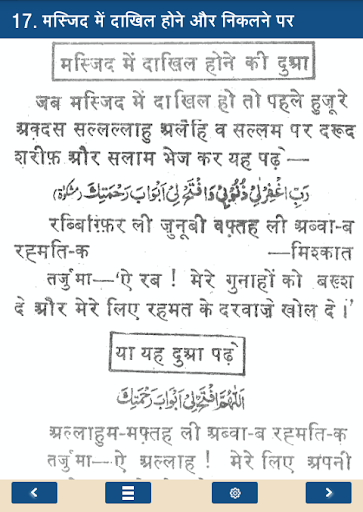 17. मस्जिद में दाखिल होने और निकलने पर
मस्जिद में दाखिल होने की दुआ
जब मस्जिद में दाखिल हो तो पहले हुजूरे
अक़्दस सल्लल्लाहु अलैहि व सल्लम पर दरूद
शरीफ़ और सलाम भेज कर यह पढ़े —
رَبِّ اغْفِرْلِيْ ذُنُوْبِيْ وَافْتَحْ لِيْ اَبْوَابَ رَحْمَتِكَ (مشكوة)
रब्बिग़्फ़िर ली ज़ुनूबी वफ़्तह ली अब्वा-ब
रह्मति-क —मिश्कात
तर्जुमा—'ऐ रब ! मेरे गुनाहों को बख़्श
दे और मेरे लिए रहमत के दरवाज़े खोल दे ।'
या यह दुआ पढ़े
اَللّٰهُمَّ افْتَحْ لِيْ اَبْوَابَ رَحْمَتِكَ
अल्लाहुम-मफ़्तह ली अब्वा-ब रह्मति-क
तर्जुमा—ऐ अल्लाह ! मेरे लिए अपनी